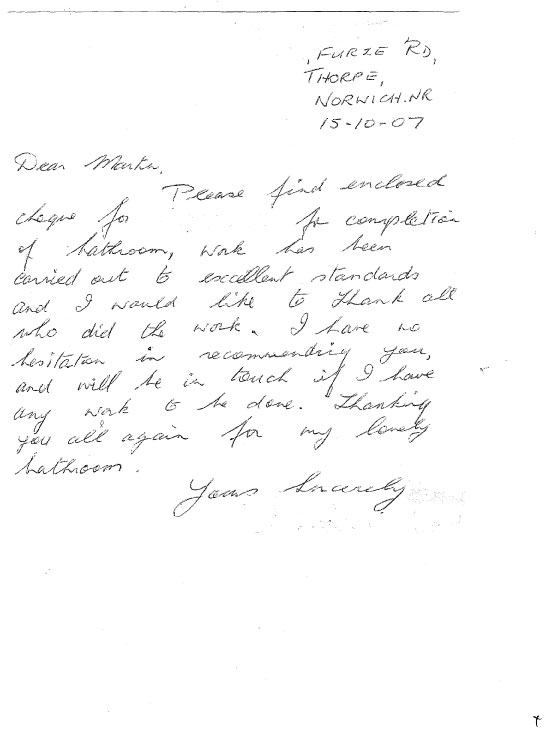 , FURZE RD,
THORPE,
NORWICH. NR
15-10-07
Dear Martin,
Please find enclosed
cheque for for completion
of bathroom, work has been
carried out to excellent standards
and I would like to thank all
who did the work. I have no
hesitation in recommending you,
and will be in touch if I have
any work to be done. Thanking
you all again for my lovely
bathroom.
Yours Sincerely